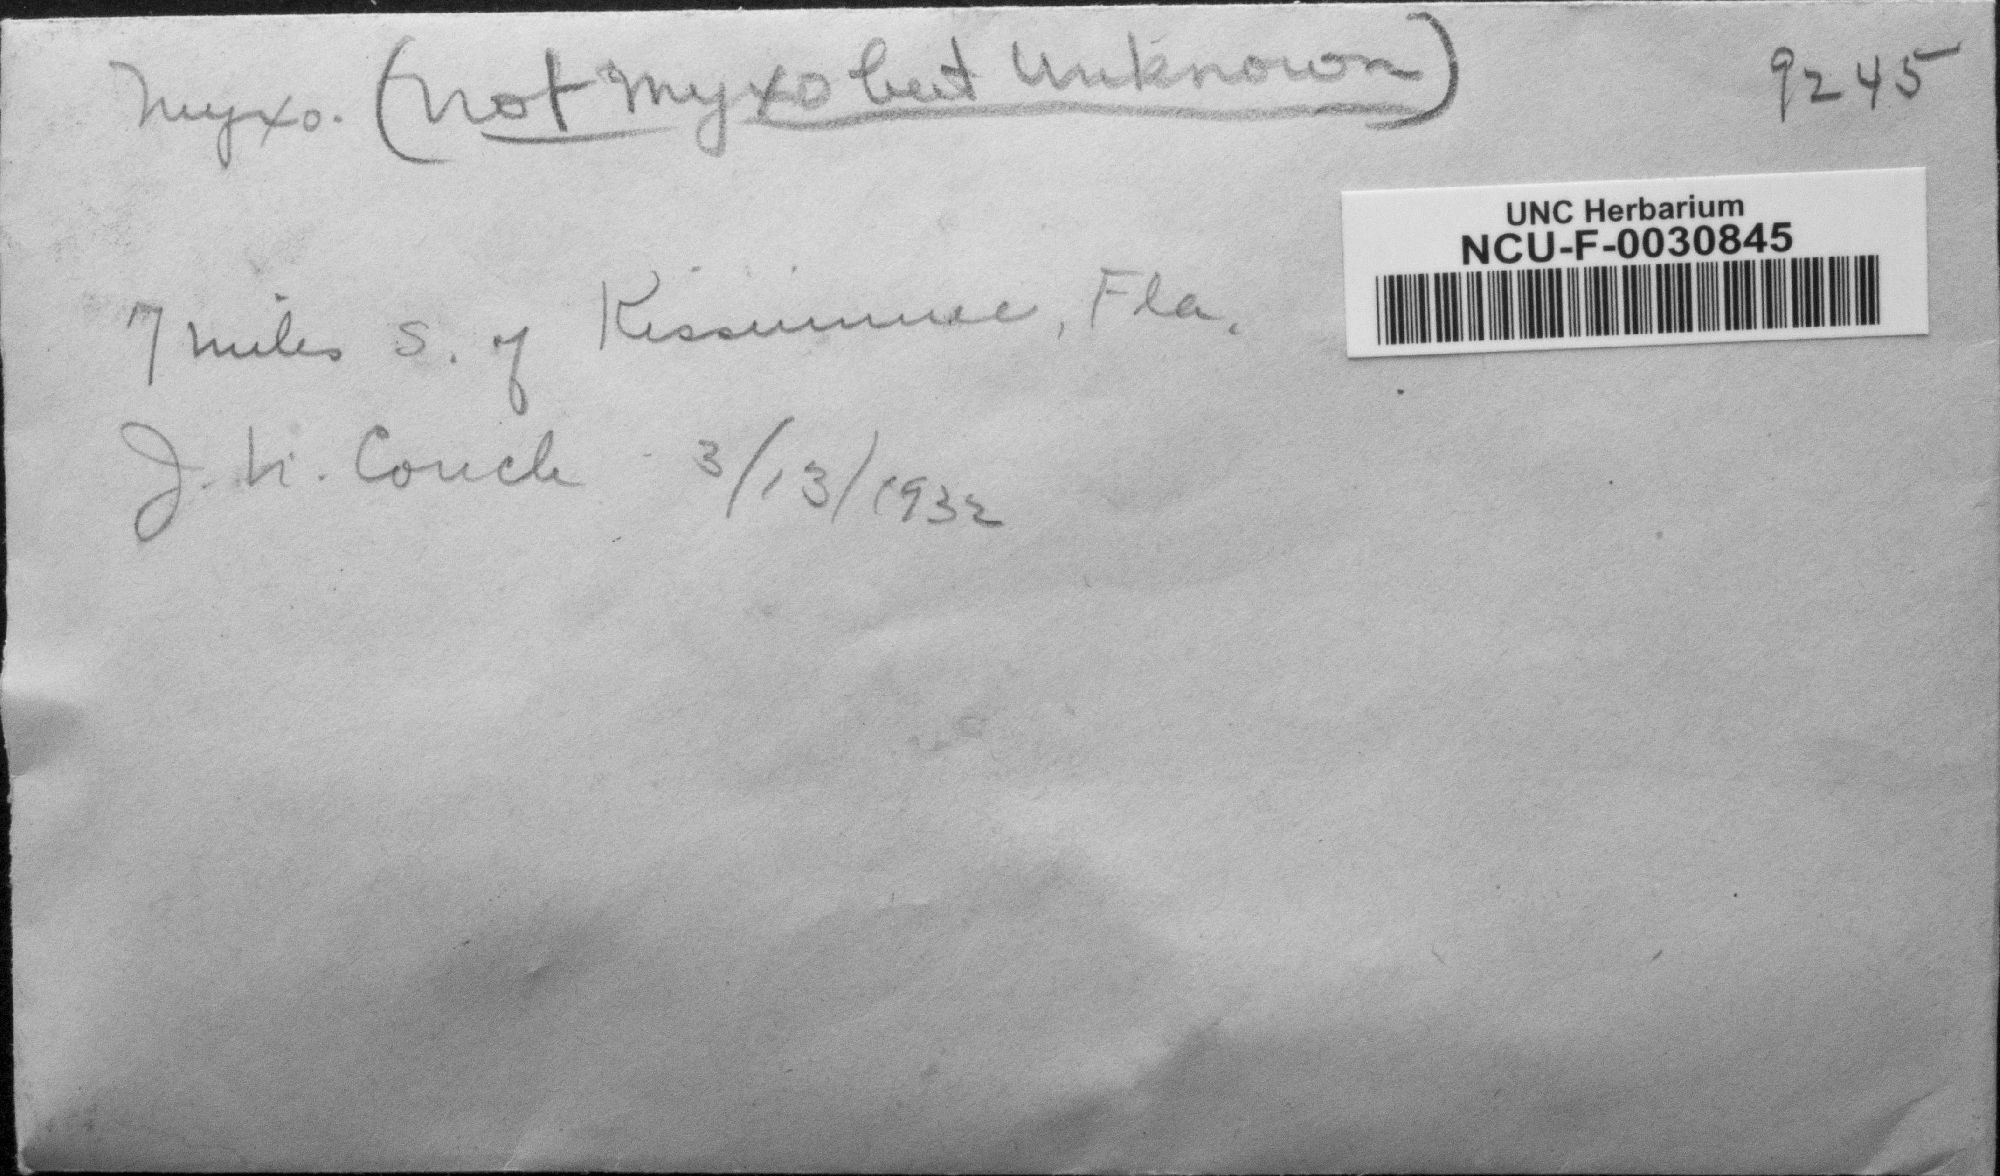 Myxo. (not Myxo but Unknown) 9245
UNC Herbarium
NCU-F-0030845
7 miles S. of Kissimmee, Fla.
J. N. Couch 3/13/1932